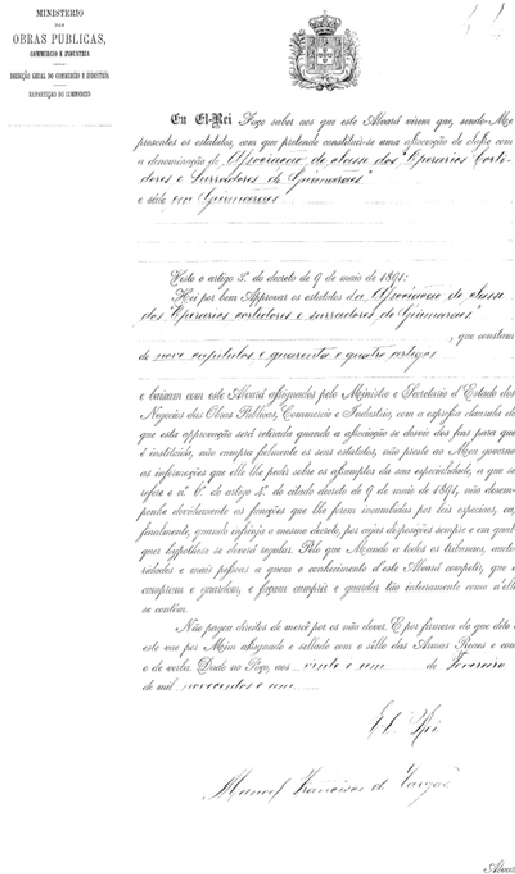 MINISTERIO
DAS
OBRAS PUBLICAS,
COMMERCIO E INDUSTRIA
DIRECÇÃO GERAL DO COMMERCIO E INDUSTRIA
REPARTIÇÃO DO COMMERCIO
Eu El-Rei Faço saber aos que este Alvará virem que, sendo-Me
presentes os estatutos, com que pretende constituir-se uma associação de classe com
a denominação de Associação de classe dos "Operarios Corti-
dores e Surradores de Guimarães"
e séde em Guimarães
Visto o artigo 5.º do decreto de 9 de maio de 1891:
Hei por bem Approvar os estatutos da Associação de classe
dos "Operarios cortidores e surradores de Guimarães"
, que constam
de nove capitulos e quarenta e quatro artigos
e baixam com este Alvará assignados pelo Ministro e Secretario d'Estado dos
Negocios das Obras Publicas, Commercio e Industria, com a expressa clausula de
que esta approvação será retirada quando a associação se desvie dos fins para que
é instituida, não cumpra fielmente os seus estatutos, não preste ao Meu governo
as informações que elle lhe pedir sobre os assumptos da sua especialidade, a que se
refere o n.º 6.º do artigo 4.º do citado decreto de 9 de maio de 1891, não desem-
penhe devidamente as funcções que lhe forem incumbidas por leis especiaes, ou,
finalmente, quando infrinja o mesmo decreto, por cujas disposições sempre e em qual-
quer hypothese se deverá regular. Pelo que Mando a todos os tribunaes, aucto-
ridades e mais pessoas a quem o conhecimento d'este Alvará competir, que o
cumpram e guardem, e façam cumprir e guardar tão inteiramente como n'elle
se contém.
Não pagou direitos de mercê por os não dever. E por firmeza do que dito é
este vae por Mim assignado e sellado com o sello das Armas Reaes e com
o de verba. Dado no Paço, aos vinte e um de Fevereiro
de mil novecentos e um
El Rei
Manoel Francisco de Vargas